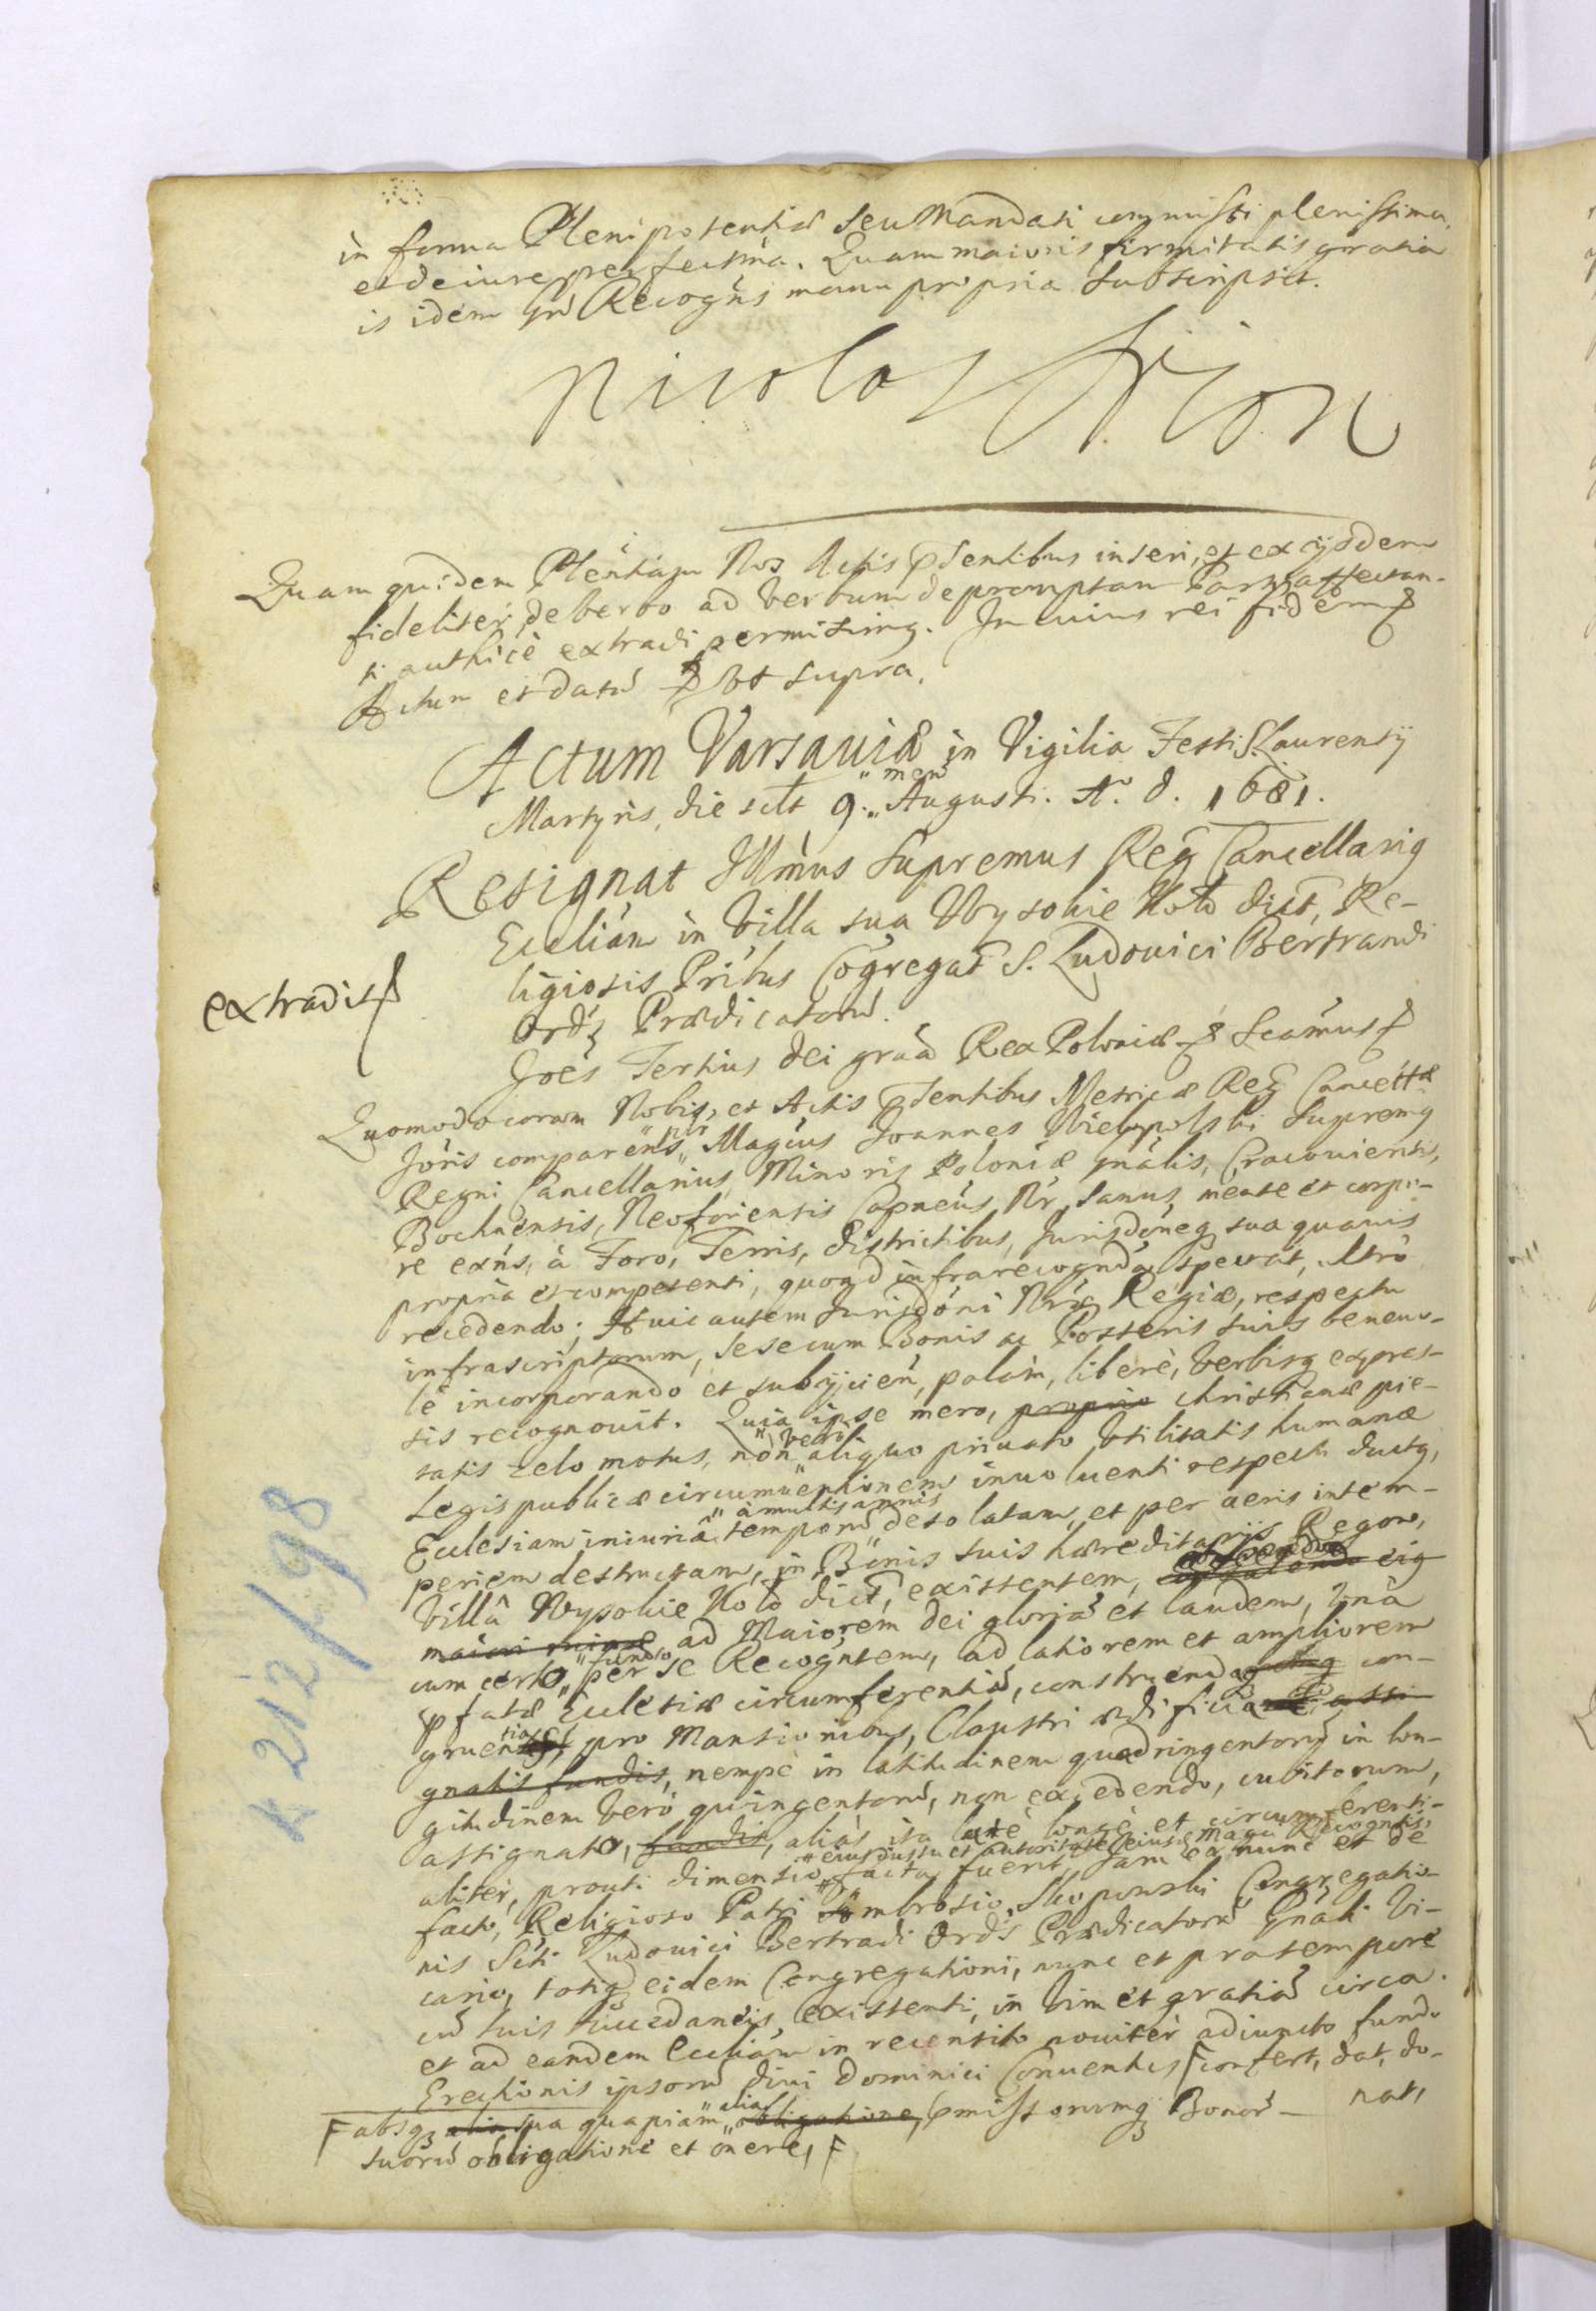 in forma Plenipotentiæ seu Mandati commissi plenissima,
et de iure perfectma. Quam maioris firmitatis gratia
is idem gñs Recogñs manu propria subscripsit.
Nicolas
Quam quidem Plentiam Nos Actis pñtentibus inseri, et ex ijsdem
fideliter de verbo ad verbum depromptam Parti affectan-
ti authicè extradi permisimg. In cuius rei fidem
Actum et datũ ut supra.
Actum Varsauiæ in Vigilia Festi S. Laurentij
Martyris, die sclt 9. „men„ Augusti. Aº. d. 1681.
Resignat Illmus Supremus Regñ Cancellarig
Eccliam in Villa sua Wysokie Koło dict, Re-
ligiosis Pribus Cogregat S. Ludouici Bertrandi
Ordis Prædicatorũ.
extradit
Joes Tertius Dei graã Rex Poloniæ Scamus
Quomodo coram Nobis, et Actis pñtentibus Metricæ Regñ Cancellæ
Joris comparens „pr„ Magcus Joannes Wielopolski Supremg
Regni Cancellarius, Minoris Poloniæ gnalis, Cracouiensis,
Bochnensis, Neoforiensis Capneus Nr, sanus mente et corpo-
re exñs, à Foro, Terris, Districtibus, Jurisdoneq sua quauis
propria et competenti, quoad infrarecogndã spectat, ultro
recedendo; Huic autem Jurisdoni Nræ Regiæ, respectu
infrascriptorum, sese cum Bonis ac Posteris suis beneuo-
le incorporando et subijcien, palam, liberè, verbisq expres-
sis recognouit. Quia ipse mero, proprio christianæ pie-
tatis zelo motus, non „vero„ aliquo priuato Utilitatis humanæ
Legis publicæ circumuentionem inuoluenti respectu ductg,
Ecclesiam iniuriâ temporũ „à multis annis„ desolatam, et per aeris intem-
periem destructam, in Bonis suis hæreditarijs Regow,
Villâ Wysokie Koło dict, existentem, eig
maiori, ad Maiorem Dei gloriã et laudem, Unà
cum certo „fundo„ per se Recogñtem, ad latiorem et ampliorem
pfatæ Ecclesiæ circumferentiã, construenda con-
gruentia pro Mansionibus, Claustri ædificia assi-
gnatis fundis, nempè in latitudinem quadringentorũ in lon-
gitudinem verò quingentorũ, non excedendo, cubitorum,
assignato, fundis, aliàs ita latè longè et circumferenti-
aliter, prouti dimensio „eius iussu et autoritate eiusd Magci Recognts„ facta fuerit, Jam ex nunc et de
facto, Religioso Patri Ambrosio Skopowski Congregatio-
nis Scti Ludouici Bertradi Ordis Prædicatorũ Gnali Vi-
cario, totig eidem Congregationi, nunc et pro tempore
cũ suis succedaneis existenti, in Vim et gratiã circa
et ad eandem Eccliam in recensito nouiter adiuncto fundo
Erectionis ipsorũ Diui Dominici Conuentus F confert, dat, do-
nat,
F absq alia sua quapiam „alia„ obligatione, pmissorumq Bonorũ
suorũ obligatione et onere, F
K 212/98